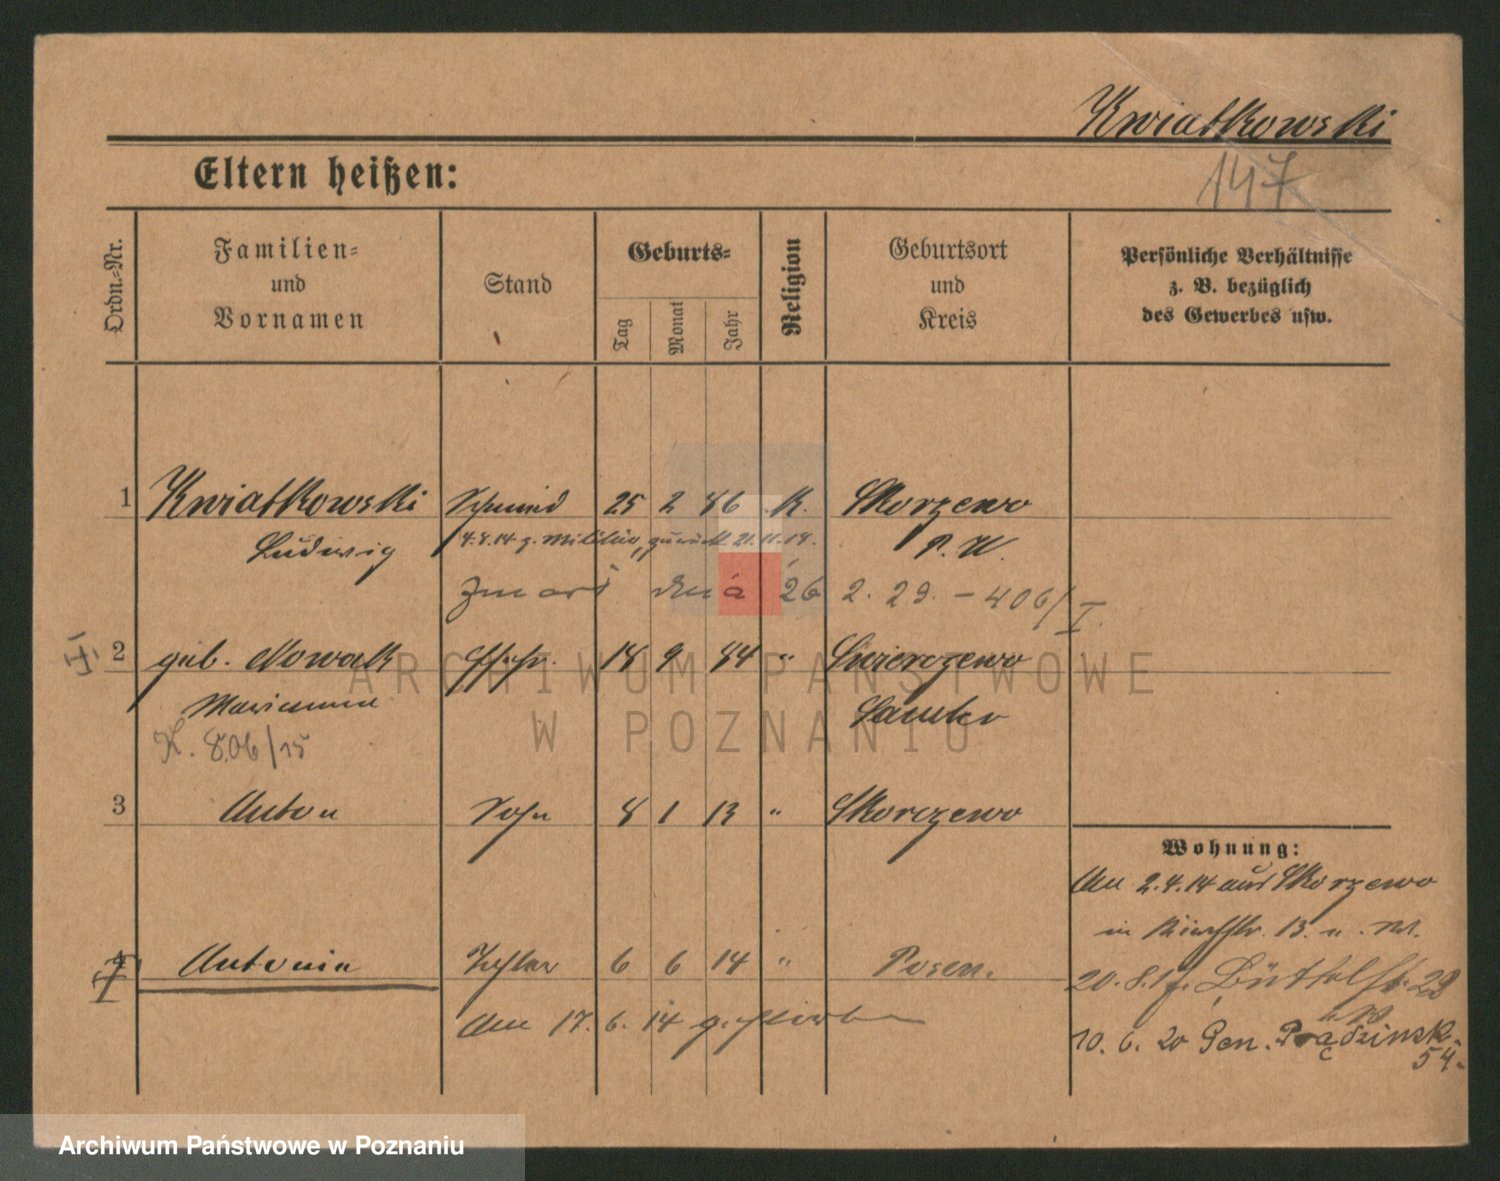 Kwiatkowski
147
Eltern heißen:
Ordn.-Nr.
Familien-
und
Vornamen
Stand
Geburts-
Tag
Monat
Jahr
Religion
Geburtsort
und
Kreis
Persönliche Verhältnisse
z. B. bezüglich
des Gewerbes usw.
1 Kwiatkowski Schmied 25 2 86 K. Skorzewo
Ludwig 4.8.14 z. Militär, zurück 21.11.18. P. W.
zmarł dnia 26 2. 29. – 406/I.
2 geb. Nowak Ehefr. 18 9 84 " Swierczewo
Marianna Samter
K. 806/15
3 Anton Sohn 8 1 13 " Skorczewo
Wohnung:
Am 2.4.14 aus Skorzewo
in 13. u. W.
4 Antonia Tochter 6 6 14 " Posen.
20. 8. 28
Am 17. 6. 14 gestorben
10. 6. 20 Gen. Prądzinsk.
54.
ARCHIWUM PAŃSTWOWE
W POZNANIU
Archiwum Państwowe w Poznaniu